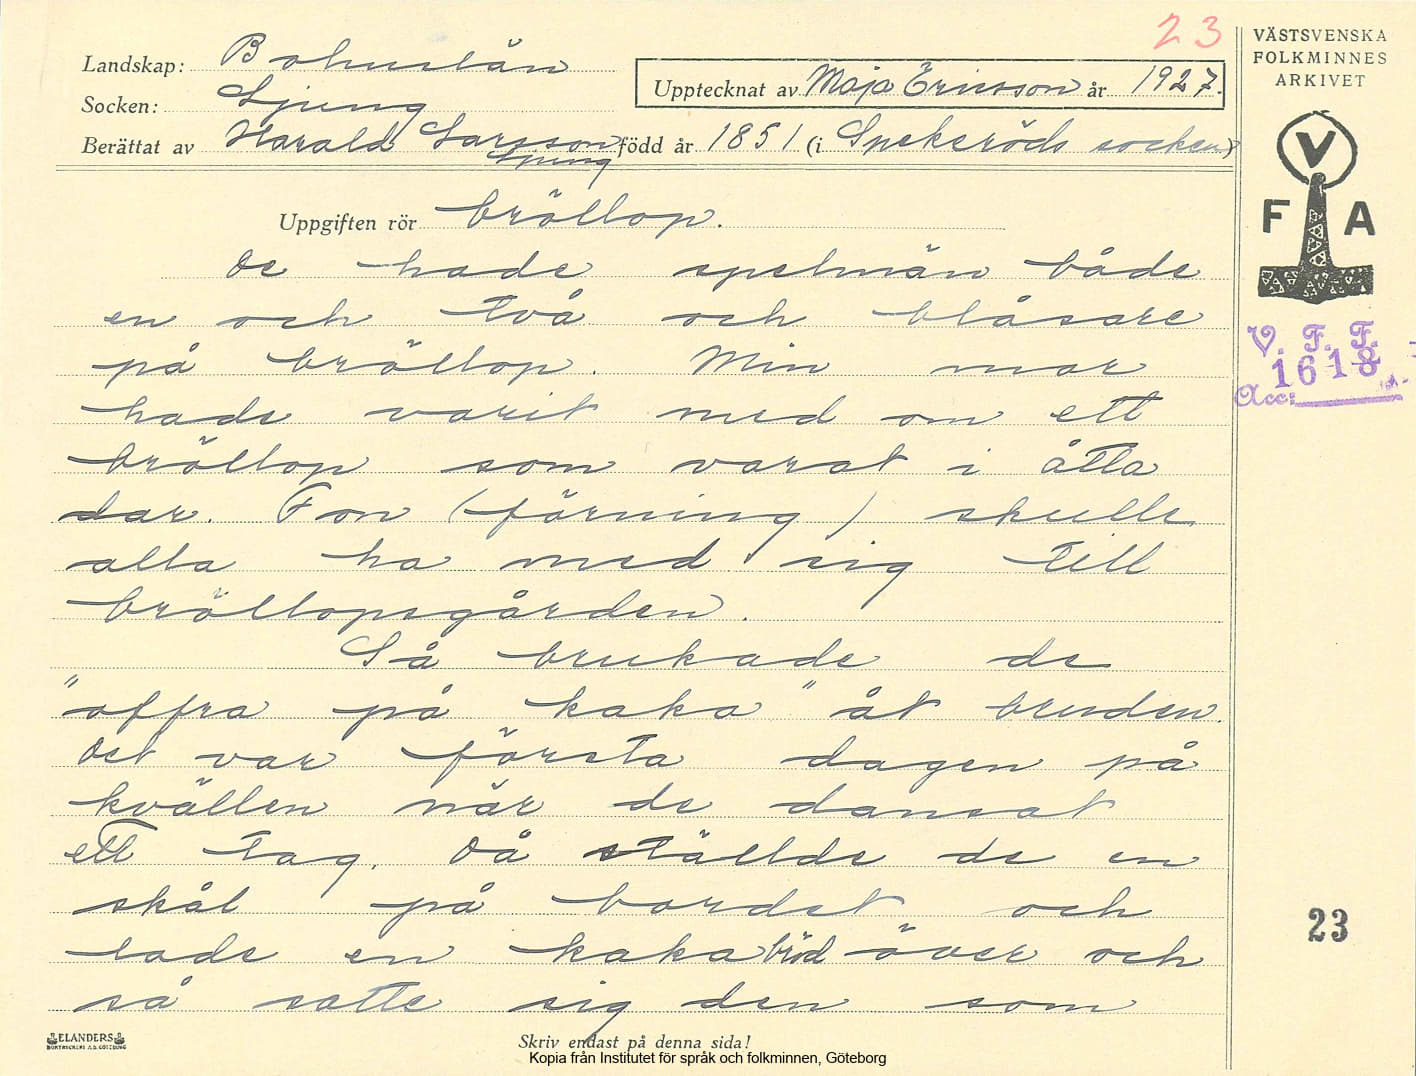 23
Landskap: Bohuslän
Socken: Ljung
Upptecknat av Maja Ericsson år 1927.
Berättat av Harald Larsson född år 1851 (i Spekeröds socken)
Ljung
VÄSTSVENSKA
FOLKMINNES
ARKIVET
V
F A
V. F. F.
Acc: 1618
Uppgiften rör bröllop.
De hade spelmän både
en och två och blåsare
på bröllop. Min mor
hade varit med om ett
bröllop som varat i åtta
dar. Fon (förning) skulle
alla ha med sig till
bröllopsgården.
Så brukade de
"offra på kaka" åt bruden.
Det var första dagen på
kvällen när de dansat
ett tag. Då ställde de en
skål på bordet och
lade en kaka bröd över och
så satte sig den som
23
ELANDERS
BOKTRYCKERI A.B. GÖTEBORG
Skriv endast på denna sida!
Kopia från Institutet för språk och folkminnen, Göteborg